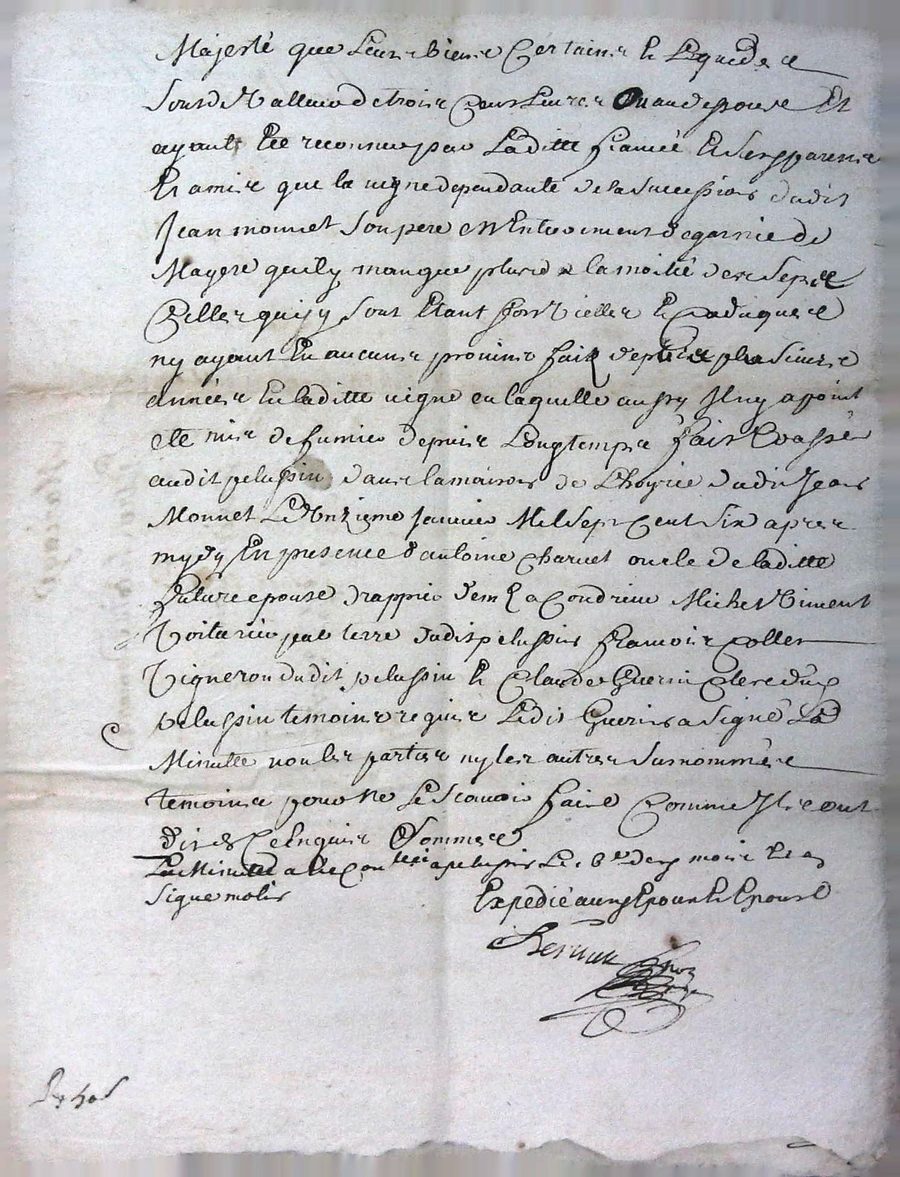 Majesté que Leurs biens Certains & Liquides
Sont de Valleur de trois Cens Livres Quand epouse Et
ayant Eté reconnu par Laditte fiancée Et Ses parens
Et amis que la vigne dependante de la Succession dudit
Jean monnet Son pere est Entierement degarnie de
Mayere quil y manque plus de la moitié des Seps &
Celles qui y Sont Etant fort Vielles & Caduques
ny ayant Eu aucuns provins fait depuis plusieurs
années En laditte vigne en laquelle aussy Il ny a point
eté mis de fumier depuis Longtemps fait & passé
audit pelussin dans la maison de L'hoyrie dudit Jean
Monnet Le Onzieme Janvier Mil Sept Cent Six apres
mydy En presence d'antoine Charvet oncle de laditte
future epouse drappier dem.t a Condrieu Michel Viment
Voiturier par terre dudit pelussin francois Collet
Vigneron dudit pelussin & Claude Guerin Clerc dud
pelussin temoins requis Ledit Guerin a Signé La
Minutte non les parties ny les autres Surnommés
temoins pour ne Le Scavoir faire Comme Ils ont
dit de Ce Enquis & Sommés
La Minutte a Eté Con.llée a pelussin Le du mois & an
Signé molis
Expedié aud Epoux & Epouse